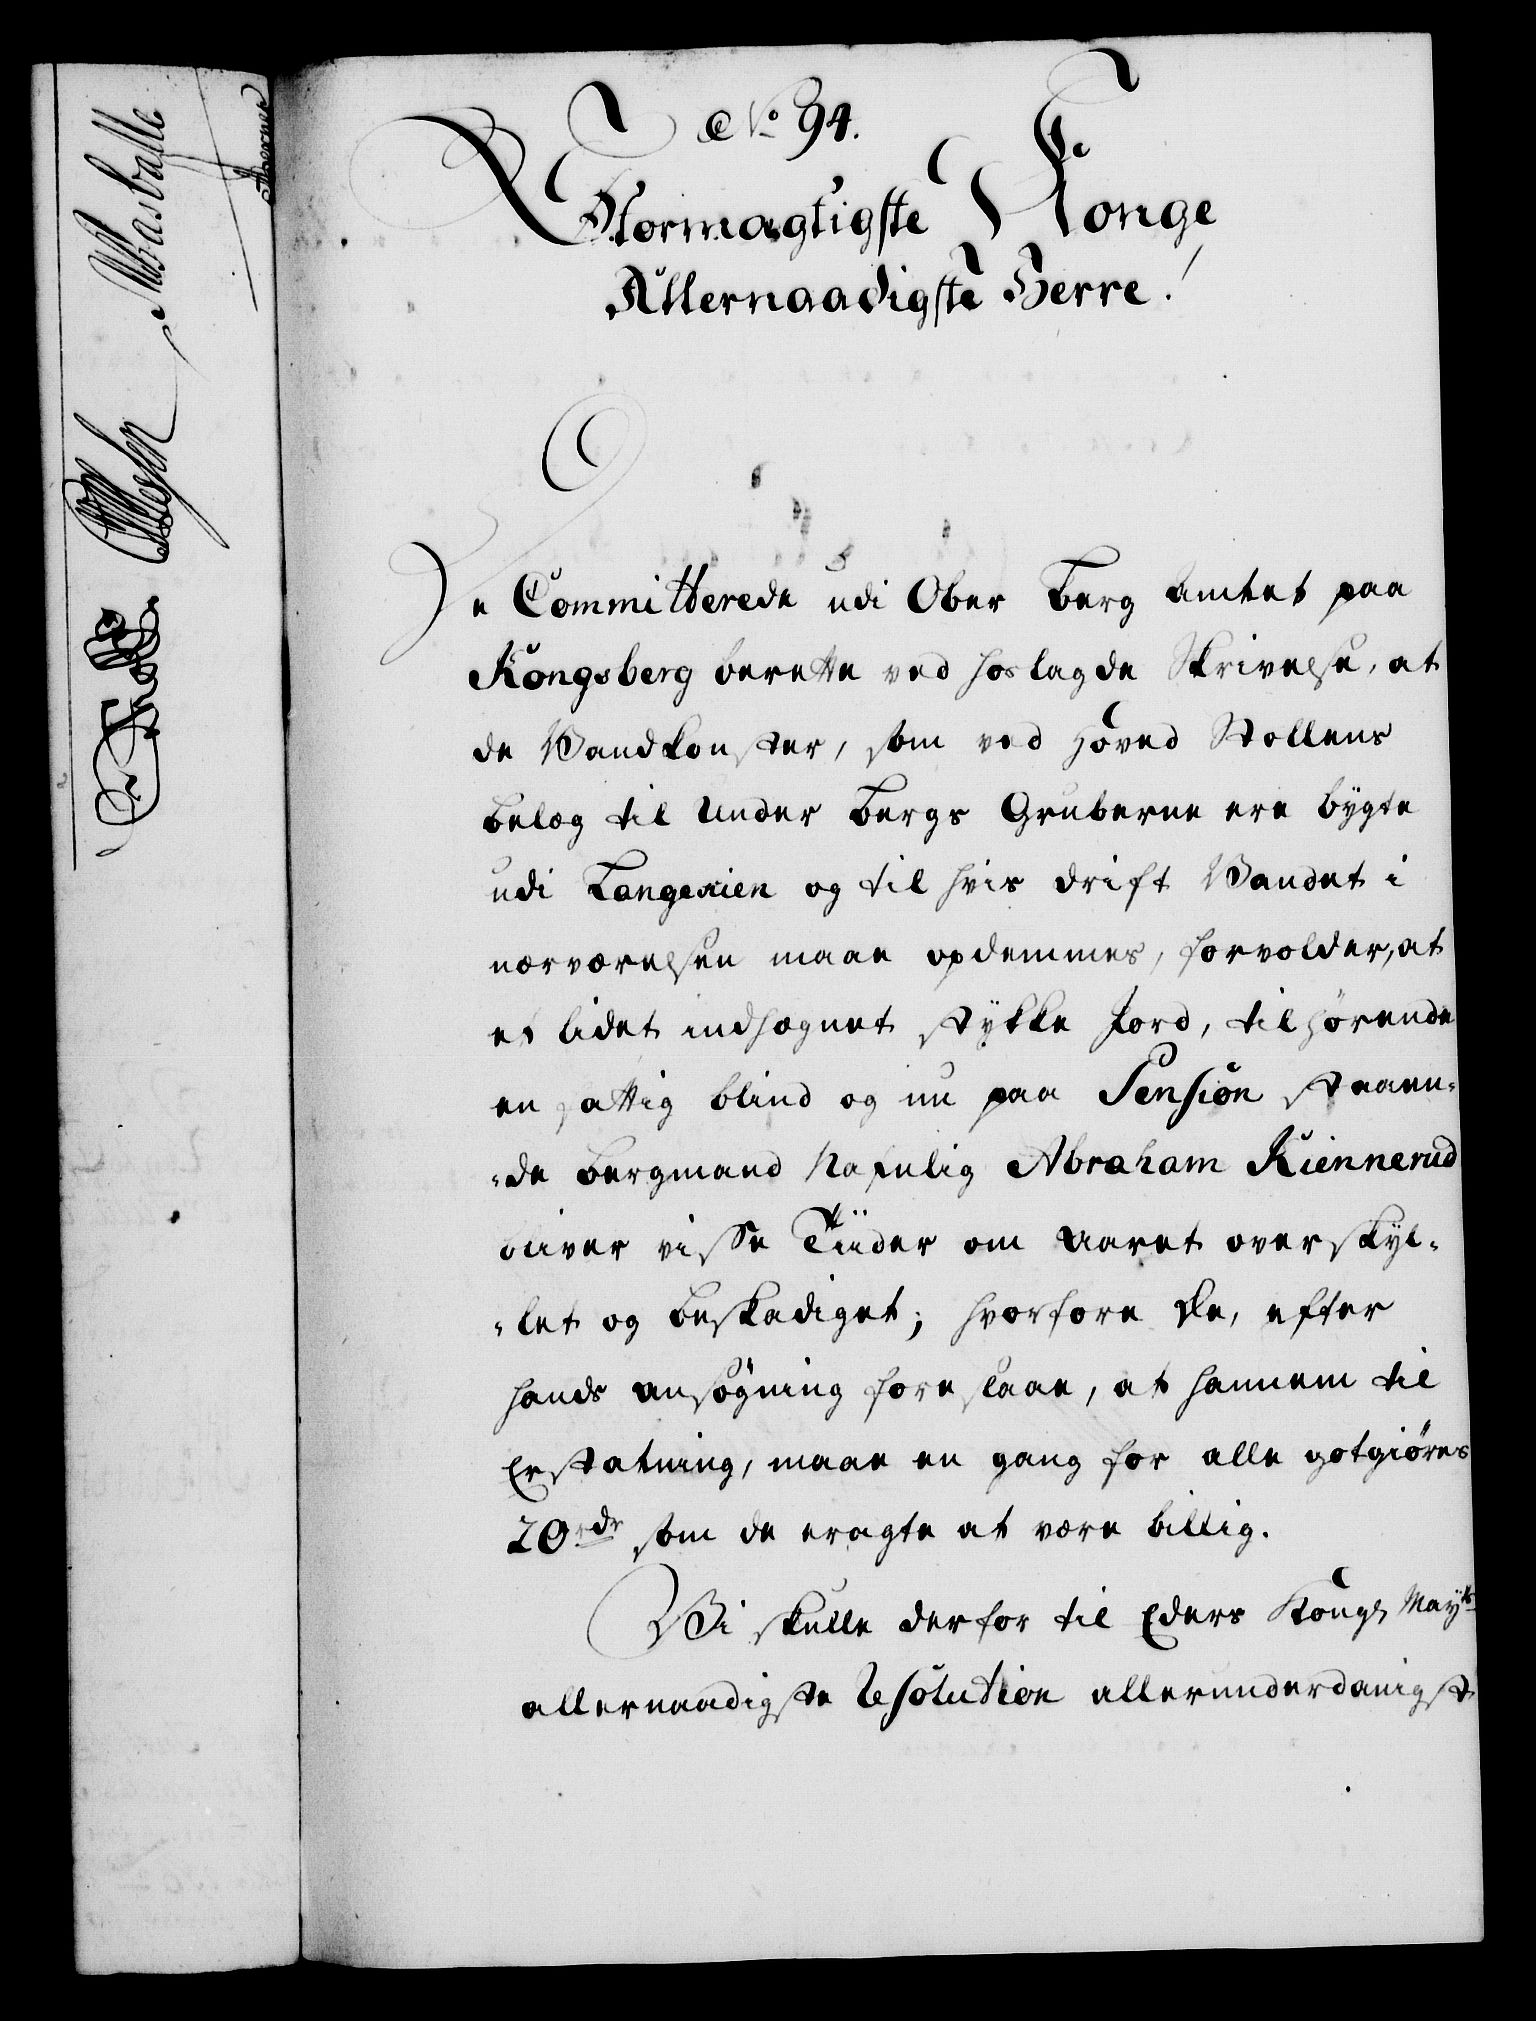 No 94.
Stormagtigste Konge
Allernaadigste Herre!
De Committerede udi Ober Berg Amtet paa
Kongsberg berette ved hoslagde Skrivelse, at
de Vandkonster, som ved Hoved Stollens
belæg til Under Bergs Gruberne ere bygte
udi og til hvis drift Vandet i
nærværelsen maae opdemmes, forvolder, at
et lidet indhægnet stykke Jord, tilhørende
en fattig blind og nu paa Pension staaen-
-de Bergmand Nafnlig Abraham Kiennerud
bliver visse Tiider om Aaret overskyl-
-let og beskadiget; hvorfore De, efter
hands ansøgning foreslaae, at hannem til
Erstatning, maae en gang for alle gotgiøres
20 rdr som de eragte at være billig.
Vi skulle derfor til Eders Kongl Mayts
allernaadigste Resolution allerunderdanigst